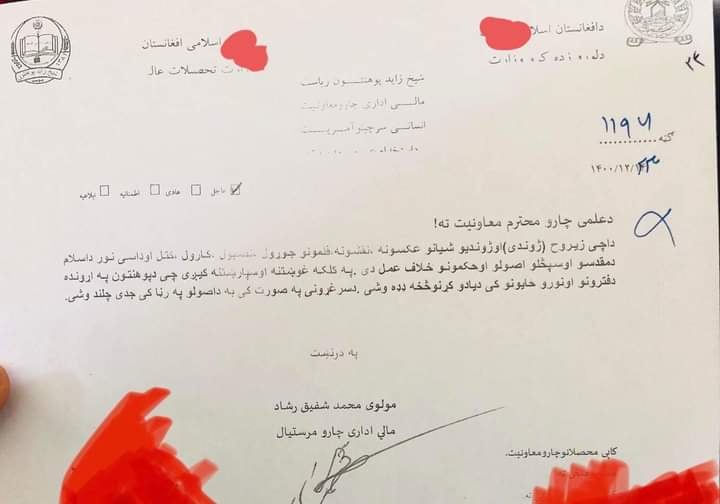 دافغانستان اسلا
اسلامی افغانستان
دلوړو زده کړو وزارت
ت تحصلات عالـ
۲۴
شیخ زاید پوهنتـــون ریاست
مالـــي اداري چارو معاونیت
انسانـــي سرچینو آمریـــت
ګڼه ............
۱۱۹۶
۱۴۰۰/۱۲/
عاجل
عادی
اطمنانیه
ابلاغیه
دعلمی چارو محترم معاونیت ته!
داچی زیروح (ژوندی)اوژوندیو شیانو عکسونه، نقشونه،فلمونو جوړول ،کارول ،کتل اوداسی نور داسلام
دمقدسو اوسپڅلو اصولو اوحکمونو خلاف عمل دی .په کلکه غوښتنه اوسپارښتنه کیږی چی دپوهنتون په اړونده
دفترونو اونورو ځایونو کی دیادو کړنوڅخه ډډه وشی .دسرغړونی په صورت کی به داصولو په رڼا کی جدی چلند وشی.
په درنښت
مولوی محمد شفیق رشاد
مالي اداري چارو مرستیال
کاپی محصلانوچارومعاونیت.
ته